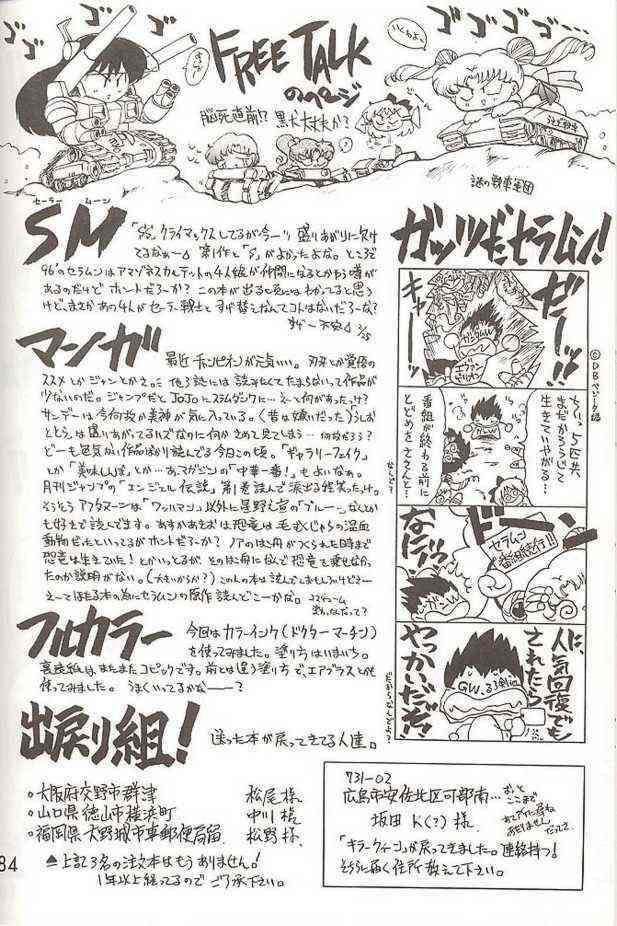 ゴゴゴ…
ゴゴゴゴ…
FREE TALK
のページ
いくわよ
脳死直前!? 黒犬大丈夫か?
謎の戦車軍団
セーラー ムーン
SM
「S」クライマックスしてるが今一ツ盛りあがりに欠け
てるなぁー 第1作と「S」がよかったよな。ところで
96'のセラムンはアマゾネスカルテットの4人娘が仲間になるとかもう噂が
あるのだけどホントだろーか? この本が出る頃にはわかってると思う
けど、まさかあの4人がセーラー戦士とすり替えなんてコトはないだろーな?
2/25
マンガ
最近チャンピオンが元気いい。刃牙とか覚悟の
ススメとかジャンとかと。
少ないのだ。ジャンプだとJoJoにスラムダンクに…えーと何があったっけ?
サンデーは今何故か美神が気に入っている。(昔は嫌いだった)うしお
ととらは盛りあがってるハズなのに何かさめて見てしまう… 何故だろう?
どーも邪気が作品ばかり読んでる今日この頃。「ギャラリーフェイク」
とか「美味しんぼ」とか…あマガジンの「中華一番!」もよいなぁ。
月刊ジャンプの「エンジェル伝説」第1巻読んで涙出る程笑ったっけ。
そうそうアフタヌーンは「ワッハマン」以外に星野之宣の「ブルーシ」なんとか
も好きで読んでます。あすかあきおは恐竜は毛むくじゃらの温血
動物だったといってるがホントだろーか? ノアのはこ舟がつくられた時まで
恐竜は生きていた!とかいっとるが そのはこ舟になんで恐竜を乗せなかっ
たのか説明がない。(大きいからか?)この人の本は読んでしまもしろいけどさー
えーてほたる本の為にセラムンの原作読んどこーかな。
フルカラー
今回はカラーインク(ドクターマーチン)
を使ってみました。塗りはいまいち。
裏表紙は、またまたコピックです。前とは違う塗り方で、エアブラスとかも
使ってみました。うまくいってるかなーーー?
出戻り組!
送った本が戻ってきてる人達。
○大阪府交野市群津 松尾様
○山口県徳山市横浜町 中川様
○福岡県大野城市車郵便局留 松野様
▲上記3名の注文本はもうありません!
1年以上経ってるのでご了承下さい。
ガッツだセラムン!
©DBベジータ編
だーッ!!
キャー
ガンダムW
エヴァンゲリオン
ちぃっ、5匹共
まだかろうじて
生きていやがる…
番組が終わる前に
とどめをささんと…
ドーン
セラムン
番組続行!!
なにィッ
人に人気回復でも
されたら
やっかいだぞ!
GW.るろ剣他
731-02
広島市安佐北区可部南…
坂田 K(?)様
おっと
ここまで
「キラークイーン」が戻ってきました。連絡持つ!
そちらに届く住所教えて下さい。
84